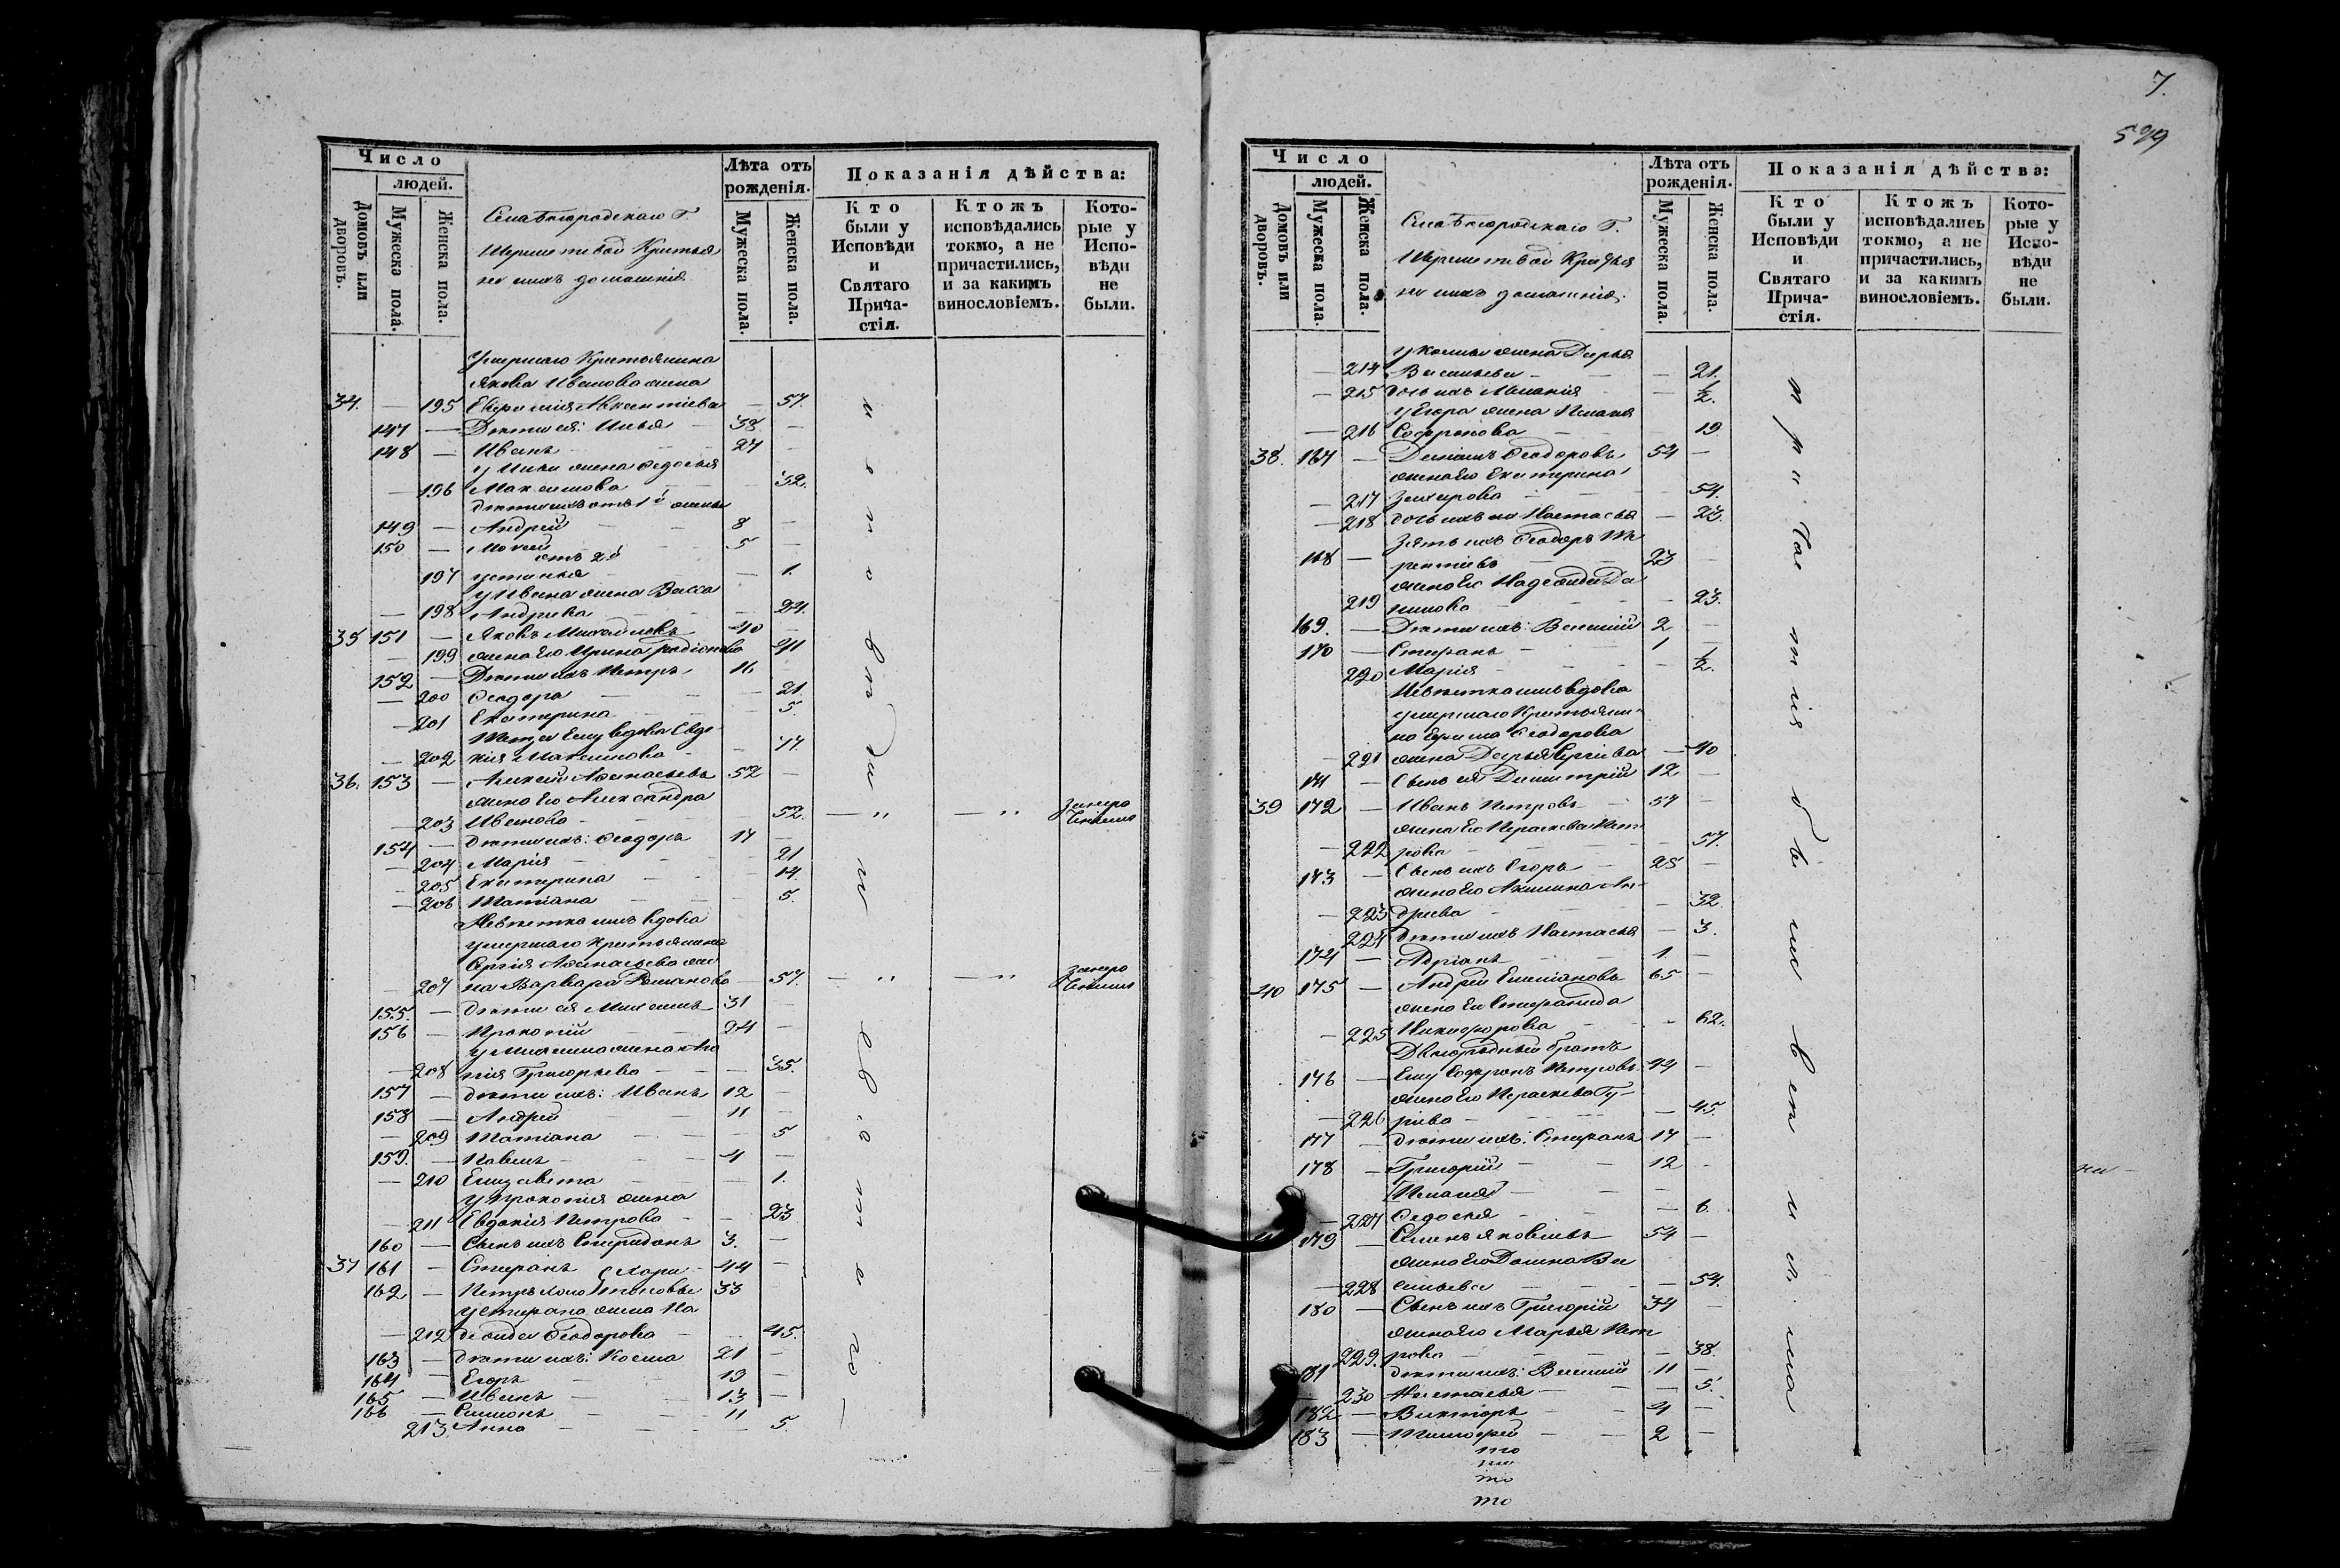 Число
людей.
Домовъ или дворовъ.
Мужеска пола.
Женска пола.
Села Богородскаго Г.
Шереметевой Крестья
не и ихъ домашнія.
Лѣта отъ рожденія.
Мужеска пола.
Женска пола.
Показанія дѣйства:
Кто были у Исповѣди и Святаго Причастія.
Ктожъ исповѣдались токмо, а не причастились, и за какимъ винословіемъ.
Которые у Исповѣди не были.
Умершаго Крестьянина
Якова Иванова жена
34. — 195 — 57.
147 — Дѣти ея: Илья — 38 —
148 — Иванъ — 27 —
у Ильи жена Федосья
— 196 Максимова — 32.
дѣти ихъ отъ 1й жены
149 — Андрей — 8 —
150 — 5 —
отъ 2й
197 Устинья — 1.
у Ивана жена Васса
— 198 Андреева — 24.
35 151 — Яковъ Михайловъ 40 —
— 199 жена Его Ирина Родіонова 41
152 — Дѣти ихъ Петръ 16
— 200 Феодора — 21.
— 201 Екатерина — 5.
Мать Ему вдова Евдо
— 202 кія Максимова — 77.
36. 153 — Алексей Афанасьевъ 52 —
жена Его Александра
— 203 Иванова — 52. — " — " За нерачениемъ
154 — дѣти ихъ: Феодоръ 17 —
— 204 Марія — 21
— 205 Екатерина — 14.
— 206 Татіана — 5.
Невѣстка ихъ вдова
умершаго Крестьянина
Сергія Афанасьева же
— 207 на Варвара Романова — 57. — " — " За нерачениемъ
155. — дѣти ея Михаилъ 31 —
156 — Прокопій — 24 —
у Михаила жена Ага
— 208 пія Григорьева — 35.
157 — дѣти ихъ: Иванъ 12 —
158 — Андрей — 11 —
— 209 Татіана — 5
159. — Павелъ — 4 —
— 210 Елизавета — 1.
у Прокопія жена
— 211 Евдокія Петрова — 23
160 — Сынъ ихъ Спиридонъ 3. —
37 161 — Стефанъ 44 —
162 — Петръ 33
у Стефана жена На
— 212 дежда Феодорова — 45.
163 — дѣти ихъ: Косма 21 —
164 — Егоръ — 19 —
165 — Иванъ — 13 —
166 — Симіонъ — 11
213. Анна — 5.
7.
599
Число
людей.
Домовъ или дворовъ.
Мужеска пола.
Женска пола.
Села Богородскаго Г.
Шереметевой Крестья
не и ихъ домашнія.
Лѣта отъ рожденія.
Мужеска пола.
Женска пола.
Показанія дѣйства:
Кто были у Исповѣди и Святаго Причастія.
Ктожъ исповѣдались токмо, а не причастились, и за какимъ винословіемъ.
Которые у Исповѣди не были.
у Космы жена Дарья
— 214 Васильева — 21.
— 215 дочь ихъ Меланія — ½.
у Егора жена Пелагея
— 216 Софронова — 19
38. 167 — Феодоровъ 54 —
жена Его Екатерина
— 217 Захарова — 54.
— 218 дочь ихъ Настасья — 23.
Зять ихъ Феодоръ Те
168 — рентіевъ 23 —
жена Его Надежда Да
219 нилова — 23.
169. — Дѣти ихъ: Василій 2 —
170 — Стефанъ — 1 —
220 Марія — ½.
Невѣстка ихъ вдова
умершаго Крестьяни
на Ефима Феодорова
— 221 жена Дарья Сергіева — 40
171 — Сынъ ея Димитрій 12 —
39 172 — Иванъ Петровъ — 57 —
жена Его Параскева Пет
— 222 рова — 57.
173 — Сынъ ихъ Егоръ — 25 —
жена Его Акилина Ан
— 223 дреева — 32.
224 дѣти ихъ Настасья — 3.
174 — Адріанъ — 1. —
40 175 — Андрей Емеліановъ 65 —
жена Его Степанида
— 225 Никифорова — 62.
Двоюродный братъ
176 — Ему Софронъ Петровъ 44 —
жена Его Параскева Гу
— 226 рьева — 45.
177 — дѣти ихъ: Стефанъ 17 —
178 — Григорій — 12 —
Пелагея —
— 227 Федосья — 6.
179 — Яковлевъ 54 —
жена Его Домна Ва
— 228 сильева — 54.
180 — Сынъ ихъ Григорій 34 —
жена Его Марья Пет
229. рова — 38.
181 — дѣти ихъ: Василій 11 —
— 230 Настасья — 5.
182 — Викторъ — 4 —
183 — Тимофей — 2 —
то
то
то
то